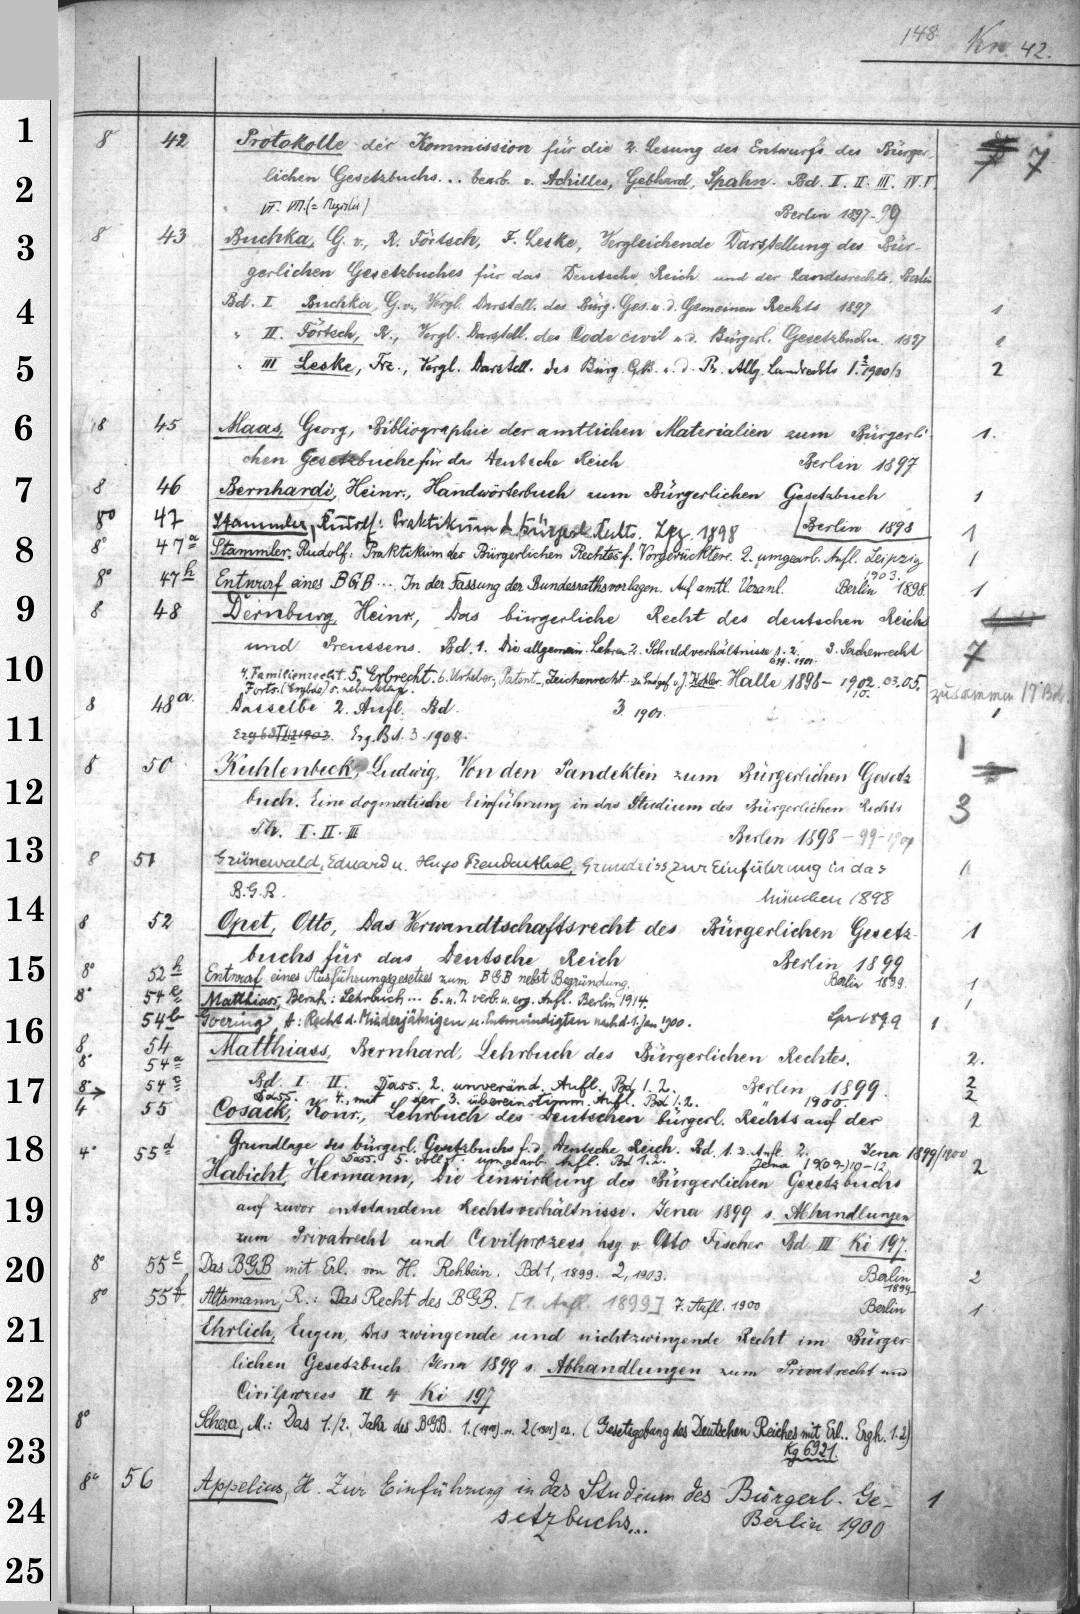 148 Kn. 42.
1
8 42 Protokolle der Kommission für die 2. Lesung des Entwurfs des Bürger- 7 7
2
lichen Gesetzbuchs... bearb. v. Achilles, Gebhard, Spahn. Bd. I. II. III. IV. V.
VI. VII. (= Register) Berlin 1897-99
3
8 43 Buchka, G. v., R. Förtsch, F. Leske, Vergleichende Darstellung des Bür-
gerlichen Gesetzbuches für das Deutsche Reich und der Landesrechte. Berlin
4
Bd. I Buchka, G. v., Vergl. Darstell. des Bürg. Ges. u. d. Gemeinen Rechts 1897 1
" II. Förtsch, R., Vergl. Darstell. des Code civil u. d. Bürgerl. Gesetzbuchs. 1897 1
5
" III Leske, Frz., Vergl. Darstell. des Bürg. G.B. u. d. Pr. Allg. Landrechts 1. 2 1900/3 2
6
8 45 Maas, Georg, Bibliographie der amtlichen Materialien zum Bürgerli- 1.
chen Gesetzbuche für das Deutsche Reich Berlin 1897
7
8 46 Bernhardi, Heinr., Handwörterbuch zum Bürgerlichen Gesetzbuch 1
8° 47 Stammler, Rudolf: Praktikum d. bürgerl. Rechts. Lpz. 1898 Berlin 1898 1
8
8° 47a Stammler, Rudolf: Praktikum des Bürgerlichen Rechtes f. Vorgerücktere. 2. umgearb. Aufl. Leipzig 1903. 1
8° 47b Entwurf eines BGB... In der Fassung der Bundesrathsvorlagen. Auf amtl. Veranl. Berlin 1898. 1
9
8 48 Dernburg, Heinr., Das bürgerliche Recht des deutschen Reichs
und Preussens. Bd. 1. Die allgemein. Lehren 2. Schuldverhältnisse 1. 2. 3. Sachenrecht 7
10
4. Familienrecht. 5. Erbrecht. 6. Urheber-, Patent-, Zeichenrecht. v. J. Kohler. Halle 1898- 1902. 03. 05. zusammen 17 Bd.
8 48a Dasselbe 2. Aufl. Bd. 3. 1901. 1
11
Erg. Bd. 3. 1908. 1
8 50 Kuhlenbeck, Ludwig, Von den Pandekten zum Bürgerlichen Gesetz
12
buch. Eine dogmatische Einführung in das Studium des Bürgerlichen Rechts 3
Th. I. II. III Berlin 1898 - 99-1901
13
8 51 Grünewald, Eduard u. Hugo Freudenthal, Grundriss zur Einführung in das 1
B.G.B. München 1898
14
8 52 Opet, Otto, Das Verwandtschaftsrecht des Bürgerlichen Gesetz- 1
buchs für das Deutsche Reich Berlin 1899
15
8° 52b Entwurf eines Ausführungsgesetzes zum BGB nebst Begründung. Berlin 1899. 1
8° 54e Matthiass, Bernh: Lehrbuch... 6. u. 7. verb. u. erg. Aufl. Berlin 1914. 1
16
54b Goering, A: Recht d. Minderjährigen u. Entmündigten nach d. 1. Jan 1900. Lpz 1899 1
8 54 Matthiass, Bernhard, Lehrbuch des Bürgerlichen Rechtes. 2.
8° 54a
17
8° → 54c Bd. I. II. Dass. 2. unveränd. Aufl. Bd 1. 2. Berlin 1899. 2
Dass. 4. mit der 3. übereinstimm. Aufl. Bd 1. 2. " 1900. 2
4 55 Cosack, Konr., Lehrbuch des Deutschen bürgerl. Rechts auf der 2
18
4° 55d Grundlage des bürgerl. Gesetzbuchs f. d. Deutsche Reich. Bd. 1. 2. Aufl. 2. Jena 1899/1900
Dass. 5. völlig umgearb. Aufl. Bd 1. 2. Jena 1909-10-12
Habicht, Hermann, Die Einwirkung des Bürgerlichen Gesetzbuchs 2
19
auf zuvor entstandene Rechtsverhältnisse. Jena 1899 s. Abhandlungen
zum Privatrecht und Civilprozess hsg. v. Otto Fischer Bd III Ki 197.
20
8° 55e Das BGB mit Erl. von H. Rehbein. Bd 1, 1899. 2, 1903. Berlin 1899- 2
8° 55f. Altsmann, R.: Das Recht des BGB. [1. Aufl. 1899] 7. Aufl. 1900 Berlin 1
21
Ehrlich, Eugen, Das zwingende und nichtzwingende Recht im Bürger-
lichen Gesetzbuch Jena 1899 s. Abhandlungen zum Privatrecht und
22
Civilprozess II 4 Ki 197
8° Scherer, M.: Das 1./2. Jahr des BGB. (Gesetzgebung des Deutschen Reiches mit Erl.. Ergh. 1. 2)
23
Kg 6921.
8° 56 Appelius, H. Zur Einführung in das Studium des Bürgerl. Ge- 1
24
setzbuchs... Berlin 1900
25